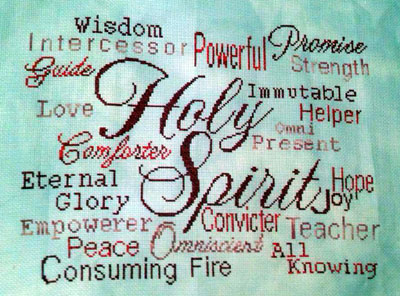 Wisdom
Intercessor Powerful Promise
Guide Strength
Holy Immutable
Love Helper
Omni
Comforter Present
Eternal Spirit Hope
Glory Joy
Empowerer Convicter Teacher
Peace Omniscient All
Consuming Fire Knowing